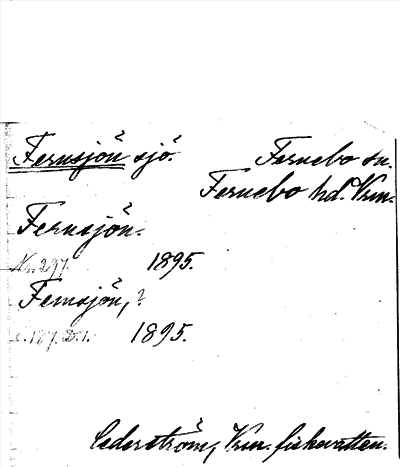 Fernsjön sjö. Fernebo sn.
Fernebo hd. Vrm.
Fernsjön.
Nr. 297. 1895.
Femsjön, ?
s. 187. D.1. 1895.
Cederström, Vrm. fiskevatten.